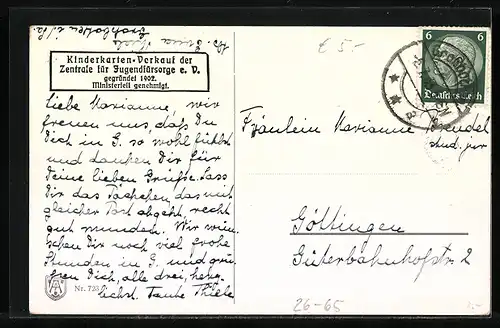 Kinderkarten-Verkauf der
Zentrale für Jugendfürsorge e. V.
gegründet 1902.
Ministeriell genehmigt.
Liebe Marianne, wir
freuen uns, daß Du
Dich in G. so wohl fühlst
und danken Dir für
Deine lieben Grüße. Lass
Dir das Päckchen, das mit
gleicher Post abgeht, recht
gut munden. Wir wün-
schen Dir noch viel frohe
Stunden in G. und grü-
ßen Dich, alle drei, herz-
lichst. Tante Thiele
Nr. 723
£ 5-
6 6
Deutsches Reich
Fräulein Marianne
stud. jur
Göttingen
Güterbahnhofstr. 2
26-65